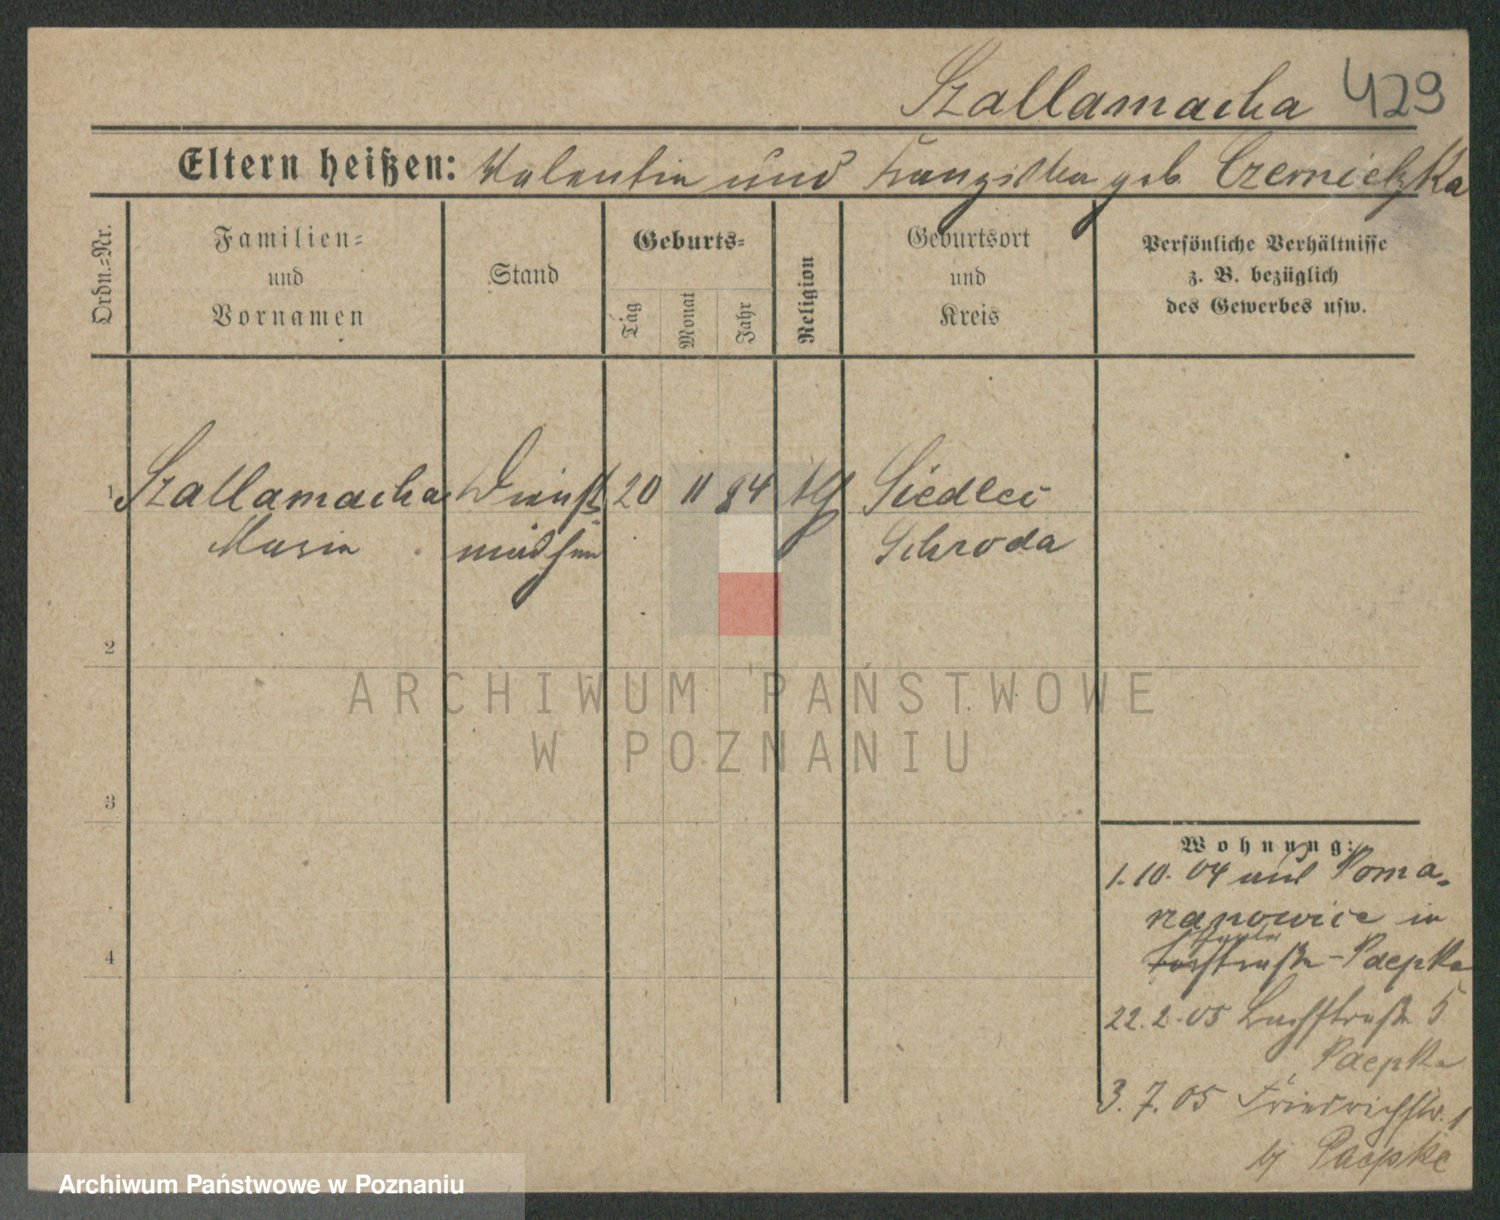 Szallamacha 429
Eltern heißen: Valentin und Franziska geb. Czernietzka
Ordn.=Nr.
Familien=
und
Vornamen
Stand
Geburts=
Tag
Monat
Jahr
Religion
Geburtsort
und
Kreis
Persönliche Verhältnisse
z. B. bezüglich
des Gewerbes usw.
1 Szallamacha Dienst 20 11 84 Siedlec
Maria mädchen Schroda
2
3
4
Wohnung:
1. 10. 04 aus Poma-
rzanowice in
Paepke
22. 2. 05 Bachstraße 5
Paepke
3. 7. 05 Friedrichstr. 1
bj Paepke
ARCHIWUM PAŃSTWOWE
W POZNANIU
Archiwum Państwowe w Poznaniu